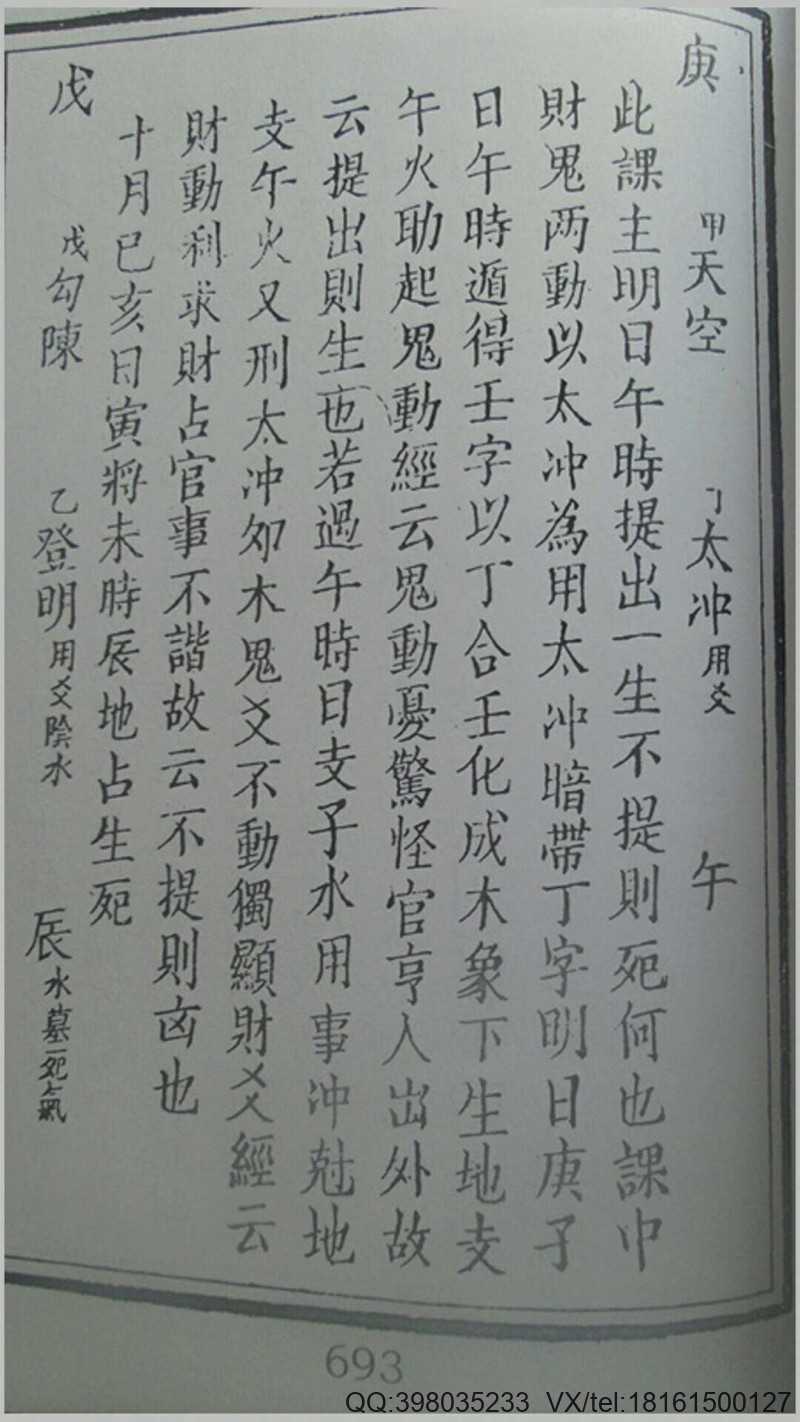 庚　甲天空　丁太冲用爻　午
此課主明日午時提出一生不提則死何也課中
財鬼两動以太冲為用太冲暗帶丁字明日庚子
日午時遁得壬字以丁合壬化成木象下生地支
午火助起鬼動經云鬼動憂驚怪官亨人出外故
云提出則生也若過午時日支子水用事冲尅地
支午火又刑太冲夘木鬼爻不動獨顯財爻經云
財動利求財占官事不諧故云不提則凶也
十月已亥日寅將未時辰地占生死
戊　戊勾陳　乙登明用爻陰水　辰水墓死氣
693
QQ:398035233 VX/tel:18161500127